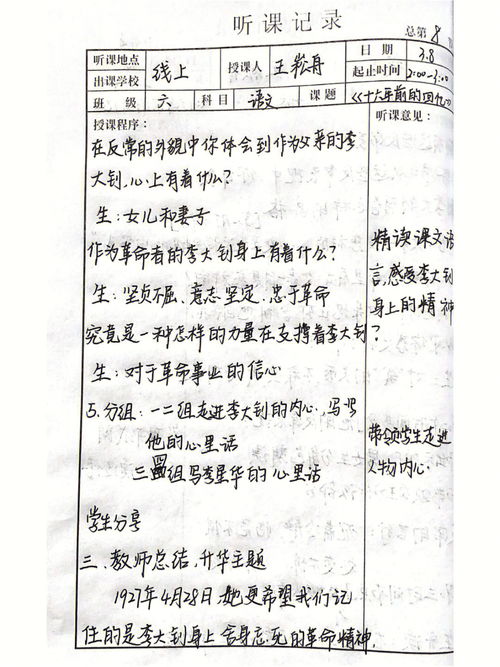 听课记录
总第8
听课地点 线上 授课人 王崧舟 日期 3.8
出课学校 起止时间 2:00-3:00
班级 六 科目 语文 课题 《十六年前的回忆》
授课程序: 听课意见:
在反常的外貌中你体会到作为父亲的李
大钊,心上有着什么?
生:女儿和妻子
作为革命者的李大钊身上有着什么?
生:坚贞不屈、意志坚定、忠于革命
究竟是一种怎样的力量在支撑着李大钊?
生:对于革命事业的信心
5.分组:一二组走进李大钊的内心,写出
他的心里话
三四组写李星华的心里话
学生分享
三、教师总结,升华主题
1927年4月28日,她更希望我们记
住的是李大钊身上舍身忘死的革命精神.
精读课文语
言,感受李大钊
身上的精神
带领学生走进
人物内心.